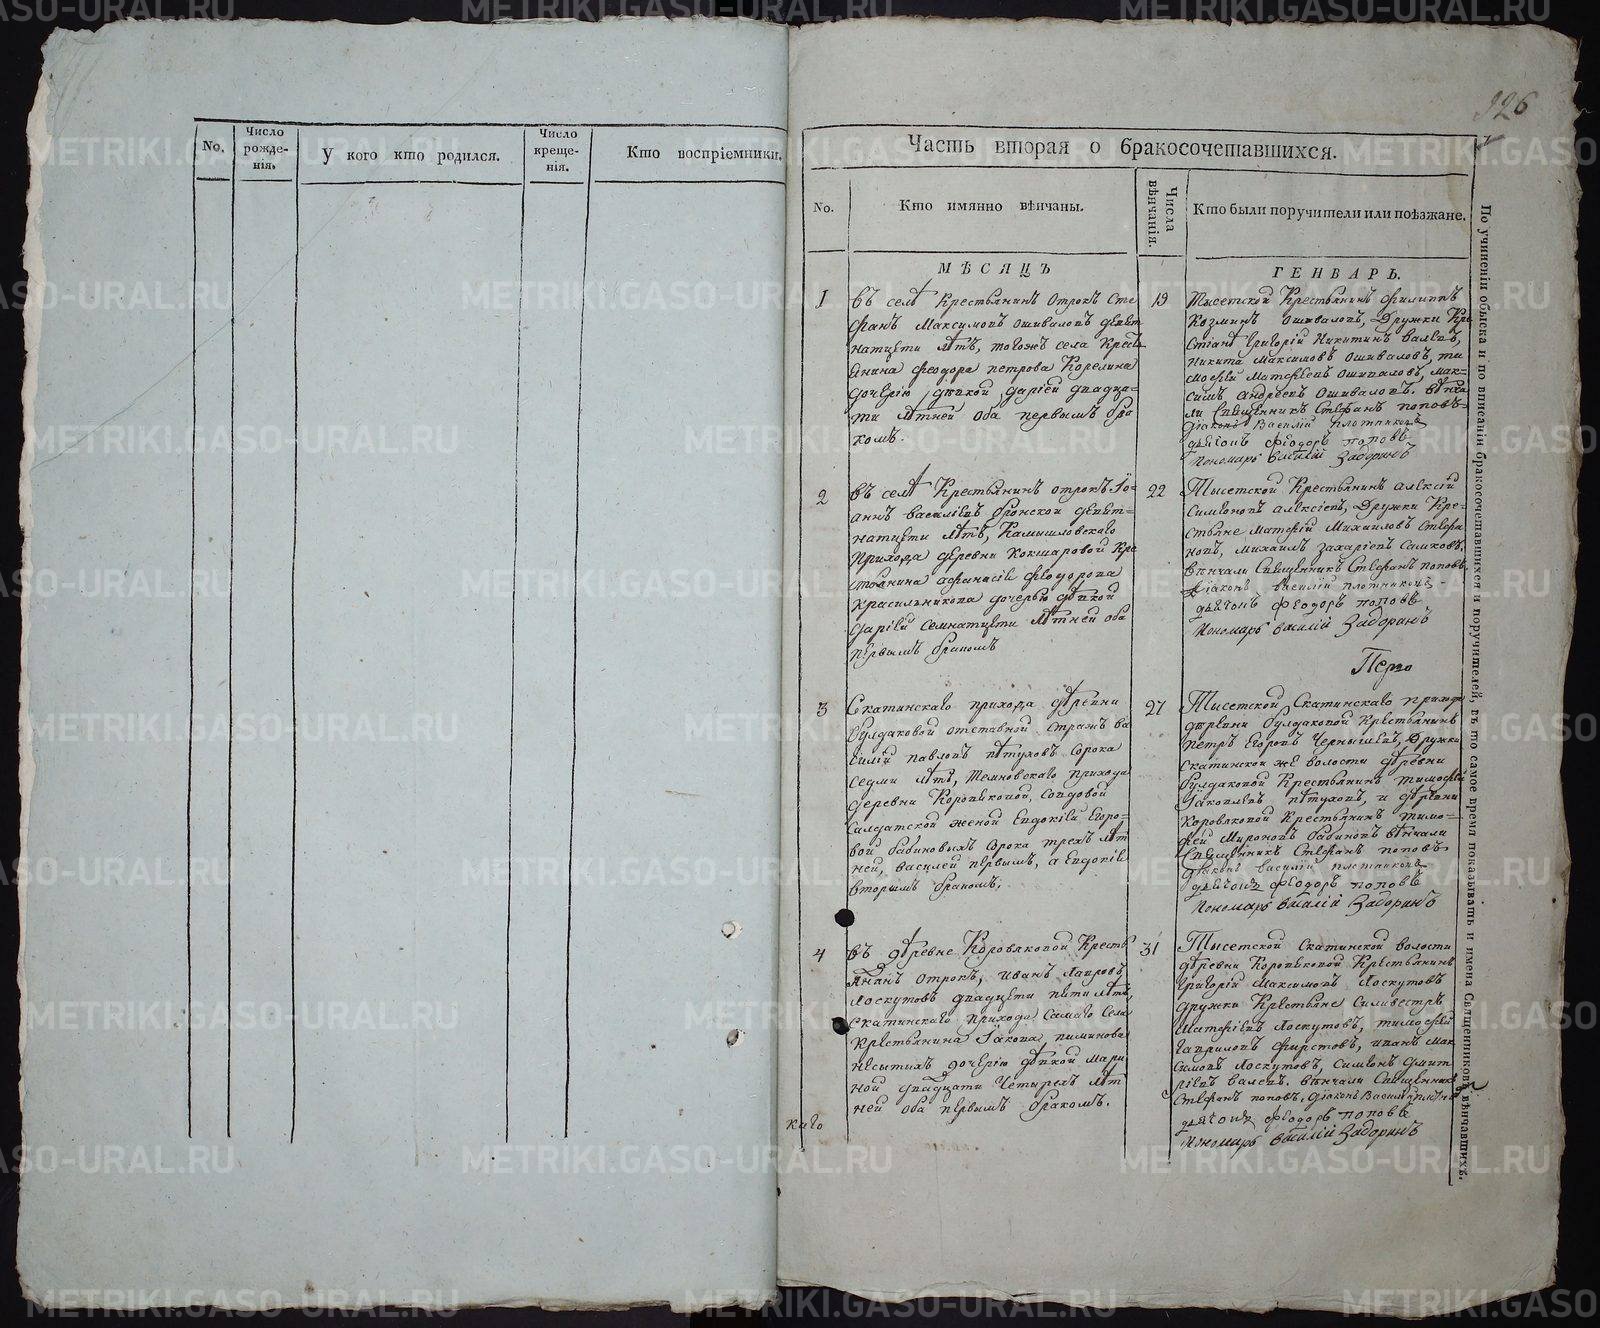 126
No.
Число
рожде-
нія.
У кого кто родился.
Число
креще-
нія.
Кто воспріемники.
Часть вторая о бракосочетавшихся.
No.
Кто имянно вѣнчаны.
Числа
вѣнчанія.
Кто были поручители или поѣзжане.
МѢСЯЦЪ
ГЕНВАРЬ.
1
въ селѣ Крестьянинъ отрокъ Сте
фанъ Максимовъ Ошиваловъ девят
натцети лѣтъ, тогожъ села Кресть
янина Феодора Петрова Корелина
дочерію дѣвкой Даріей двадца-
ти лѣтней оба первымъ бра
комъ.
19
Тысетской Крестьянинъ Филиппъ
Козминъ Ошиваловъ, Дружки Кре
стіане Григорій Никитинъ Валевъ,
Никита Максимовъ Ошиваловъ, ти
мофей Матфеевъ Ошиваловъ, мак-
симъ Андреевъ Ошиваловъ. вѣнча
ли Священникъ Стефанъ Поповъ
Діаконъ Василій Плотниковъ
дьячонъ Феодоръ Поповъ
Пономарь Василій Задоринъ
2
въ селѣ Крестьянинъ отрокъ Іо-
аннъ Василіевъ Бронской девят-
натцети лѣтъ, Камышловскаго
прихода деревни Кокшаровой Кре
стьянина Афанасіе Феодорова
Красильникова дочерью дѣвкой
Даріей семнатцети лѣтней оба
первымъ бракомъ
22
Тысетской Крестьянинъ Алексій
Симеоновъ Алексіевъ, Дружки Кре-
стьяне Матфій Михаиловъ Стефа
новъ, Михаилъ Захаріевъ Самковъ.
вѣнчали Священникъ Стефанъ Поповъ
Діаконъ Василій Плотниковъ
дьячонъ Феодоръ Поповъ
Пономарь Василій Задоринъ
3
Скатинскаго прихода дѣревни
Булдаковой отставной Стражъ Ва
силій Павловъ Пѣтуховъ сорока
седми лѣтъ, Темновскаго прихода
деревни Коровяковой, Солдовой
Салдатской женой Евдокіей Егоро-
вой Бабиновыхъ сорока трехъ лѣт
ней, Василей первымъ, а Евдокіе
вторымъ бракомъ.
27
Тысетской Скатинскаго прихода
дѣревни Булдаковой Крестьянинъ
Петръ Егоровъ Чернышевъ, Дружки
Скатинской же волости дѣревни
Булдаковой Крестьянинъ Тимофей
Іаковлевъ Пѣтуховъ, и дѣревни
Коровяковой Крестьянинъ Тимо-
фей Мироновъ Бабиновъ вѣнчали
Священникъ Стефанъ Поповъ
Діаконъ Василій Плотниковъ
дьячонъ Феодоръ Поповъ
Пономарь Василій Задоринъ
4
въ дѣревне Коровяковой Кресть
янинъ отрокъ, Иванъ Лавровъ
Лоскутовъ двадцети пяти лѣтъ,
Скатинскаго прихода Самаго Села
Крестьянина Іакова Пиминова
Несытыхъ дочерію дѣвкой Мари
ной двадцати четырехъ лѣт
ней оба первымъ бракомъ.
31
Тысетской Скатинской волости
дѣревни Коровяковой Крестьянинъ
Григорій Максимовъ Лоскутовъ
дружки Крестьяне Сильвестръ
Матфіевъ Лоскутовъ, Тимофей
Гавриловъ Фирстовъ, Иванъ Мак
симовъ Лоскутовъ, Симеонъ Дмит
ріевъ Валевъ. вѣнчали Священникъ
Стефанъ Поповъ, Діаконъ Василій
дьячонъ Феодоръ Поповъ
Пономарь Василій Задоринъ
каго
По учиненіи обыска и по вписаніи бракосочетавшихся и поручителей, въ то самое время показывать и имена Священниковъ вѣнчавшихъ.
METRIKI.GASO-URAL.RU